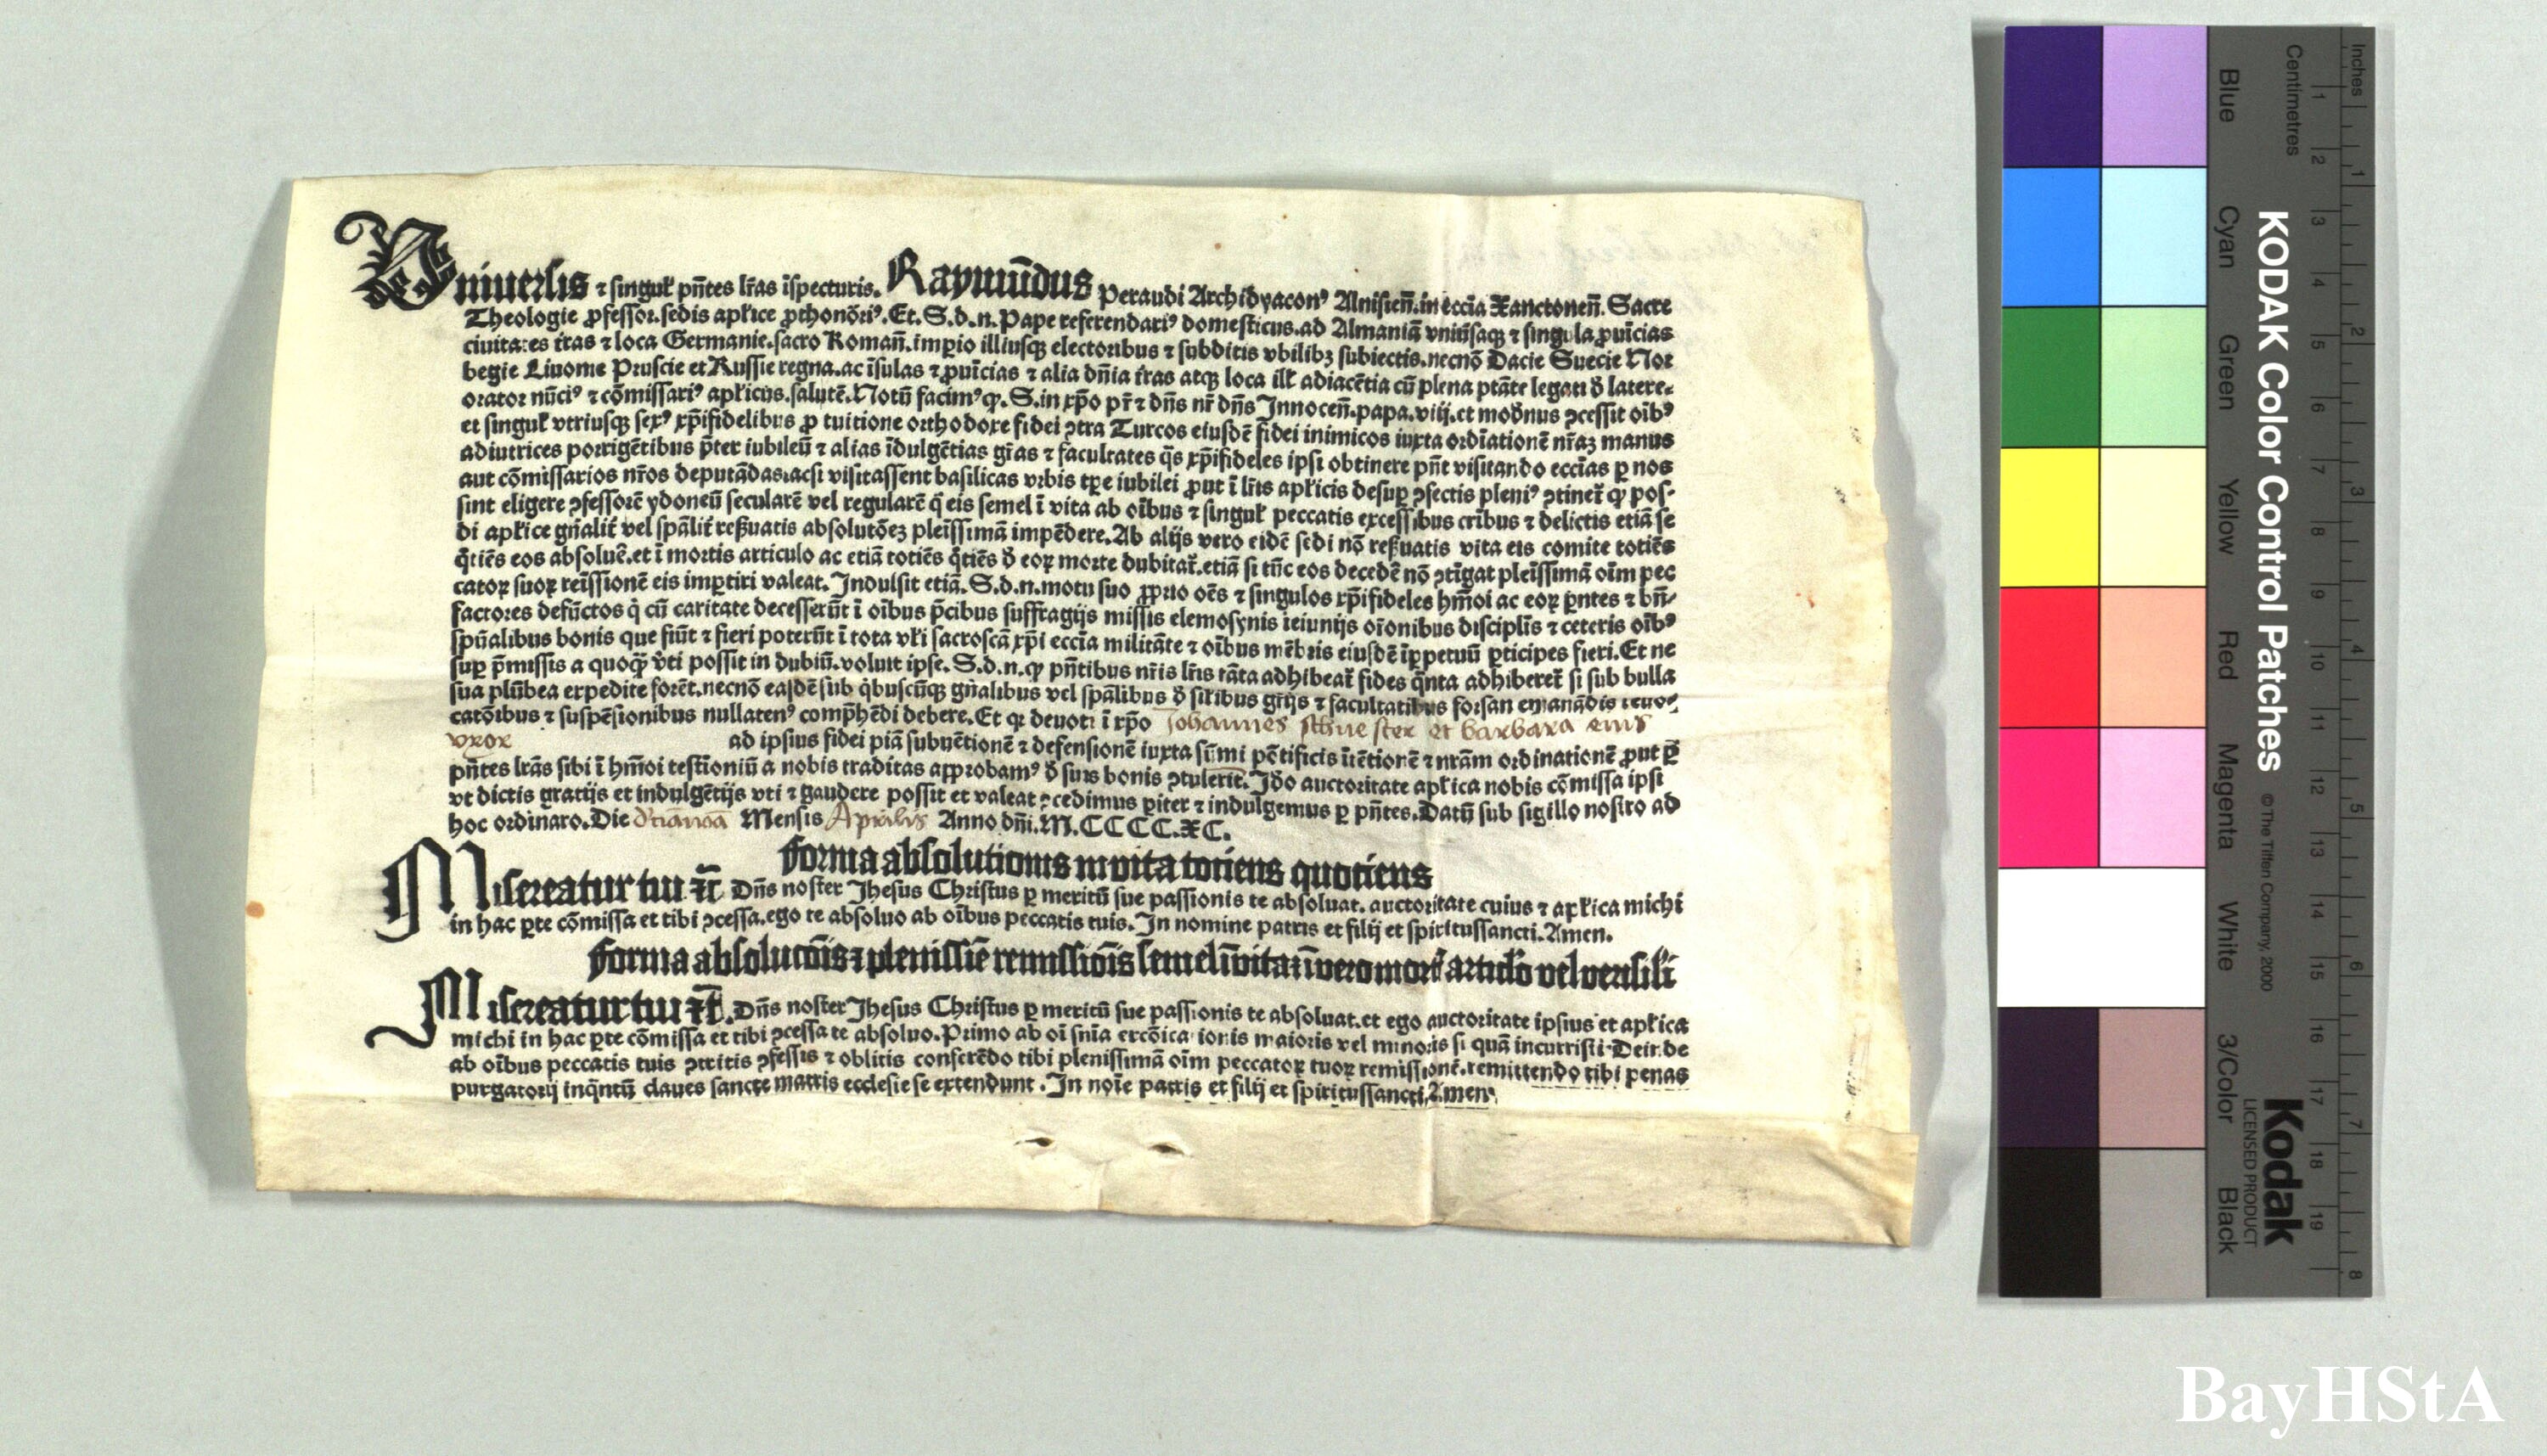 Uniuersis ⁊ singuł pn̄tes lr̄as īspecturis. Raymūdus Peraudi Archidyaconꝰ Alnisieñ. in ecc̄ia Xanctoneñ. Sacre
Theologie ꝓfessor. sedis apłice ꝓthonōriꝰ. Et. S. d. n. Pape referendariꝰ domesticus. ad Almaniā vniūsaqꝫ ⁊ singula ꝓuīcias
ciuitates t̄ras ⁊ loca Germanie. sacro Romañ. imꝑio illiusqꝫ electoribus ⁊ subditis vbilibꝫ subiectis. necnō Dacie Suecie Nor
begie Liuonie Pruscie et Russie regna. ac īsulas ⁊ ꝓuīcias ⁊ alia dn̄ia t̄ras atqꝫ loca ill̄ adiacētia cū plena ptāte legati đ latere.
orator nūciꝰ ⁊ cōmissariꝰ apłicus. salutē. Notū facimꝰ ꝙ. S. in xp̄o pr̄ ⁊ dn̄s nr̄ dn̄s Innoceñ. papa. viij. et modn̄us ꝯcessit oībꝰ
et singuł vtriusqꝫ sexꝰ xp̄ifidelibus ꝓ tuitione orthodoxe fidei ꝯtra Turcos eiusdē fidei inimicos iuxta ordīationē nr̄aꝫ manus
adiutrices porrigētibus p̄ter iubileū ⁊ alias īdulgētias gr̄as ⁊ facultates q̄s xp̄ifideles ipsi obtinere pn̄t visitando ecc̄ias ꝑ nos
aut cōmissarios nr̄os deputādas. acsi visitassent basilicas vrbis tꝑe iubilei ꝓut ī lr̄is apłicis desuꝑ ꝯfectis pleniꝰ ꝯtinet̄ ꝙ pos-
sint eligere ꝯfessorē ydoneū secularē vel regularē q̇ eis semel ī vita ab oībus ⁊ singuł peccatis excessibus crībus ⁊ delictis etiā se
di apłice gn̄alit̄ vel spālit̄ reẞuatis absolutōeꝫ pleīssimā impēdere. Ab alijs vero eidē sedi nō reẞuatis vita eis comite totiēs
q̄tiēs eos absoluē. et ī mortis articulo ac etiā totiēs q̄tiēs đ eoꝝ morte dubitat̄. etiā si tūc eos decedē nō ꝯtīgat pleīssimā oīm pec
catoꝝ suoꝝ reīssionē eis imꝑtiri valeat. Indulsit etiā. S. d. n. motu suo ꝓprio oēs ⁊ singulos xp̄ifideles hm̄oi ac eoꝝ ꝑntes ⁊ bn̄-
factores defūctos q̇ cū caritate decesserūt ī oībus p̄cibus suffragijs missis elemosynis ieiunijs or̄onibus disciplīs ⁊ ceteris oībꝰ
spūalibus bonis que fiūt ⁊ fieri poterūt ī tota vłi sacroscā xp̄i ecc̄ia militāte ⁊ oībus mēbris eiusdē īꝑpetuū ꝑticipes fieri. Et ne
suꝑ p̄missis a quoqꝫ v̄ti possit in dubiū. voluit ipse. S. d. n. ꝙ pn̄tibus nr̄is lr̄is tāta adhibeat̄ fides q̄nta adhiberet̄ si sub bulla
sua plūbea expedite forēt. necnō easdē sub q̇buscūqꝫ gn̄alibus vel spālibus đ sil̄ibus gr̄ijs ⁊ facultatibus forsan emanādis reuo-
catōibus ⁊ suspēsionibus nullatenꝰ comp̄hēdi debere. Et qꝛ deuoti ī xp̄o Johannes schuester et barbara eius
vxor ad ipsius fidei piā subuētionē ⁊ defensionē iuxta sūmi pōtificis ītētionē ⁊ nrām ordinationē ꝓut ꝑ
pn̄tes lrās sibi ī hm̄oi testīoniū a nobis traditas approbamꝰ đ suis bonis ꝯtulerīt. Idō auctoritate apłica nobis cōmissa ipsi
vt dictis gratijs et indulgētijs vti ⁊ gaudere possit et valeat ꝯcedimus ꝑiter ⁊ indulgemus ꝑ pn̄tes. Datū sub sigillo nostro ad
hoc ordinaro. Die Mensis Aprilis Anno dn̄i. M. CCCC. XC.
Forma absolutionis in vita totiens quotiens
Misereatur tui ⁊c̄ Dn̄s noster Jhesus Christus ꝑ meritū sue passionis te absoluat. auctoritate cuius ⁊ apłica michi
in hac ꝑte cōmissa et tibi ꝯcessa. ego te absoluo ab oībus peccatis tuis. In nomine patris et filij et spiritussancti. Amen.
Forma absolucōis ⁊ plenissīe remissiōis semel ī vita ⁊ ī vero mort̄ articło vel verisīłi
Misereatur tui ⁊c̄. Dn̄s noster Jhesus Christus ꝑ meritū sue passionis te absoluat. et ego auctoritate ipsius et apłica
michi in hac ꝑte cōmissa et tibi ꝯcessa te absoluo. Primo ab oī sn̄ia excōicationis maioris vel minoris si quā incurristi. Deinde
ab oībus peccatis tuis ꝯtritis ꝯfessis ⁊ oblitis conferēdo tibi plenissimā oīm peccatoꝝ tuoꝝ remissionē. remittendo tibi penas
purgatorij inq̄ntū claues sancte matris ecclesie se extendunt. In noīe patris et filij et spiritussancti. Amen.
KODAK Color Control Patches © The Tiffen Company, 2000
Kodak
LICENSED PRODUCT
Blue Cyan Green Yellow Red Magenta White 3/Color Black
Centimetres 1 2 3 4 5 6 7 8 9 10 11 12 13 14 15 16 17 18 19
Inches 1 2 3 4 5 6 7 8
BayHStA